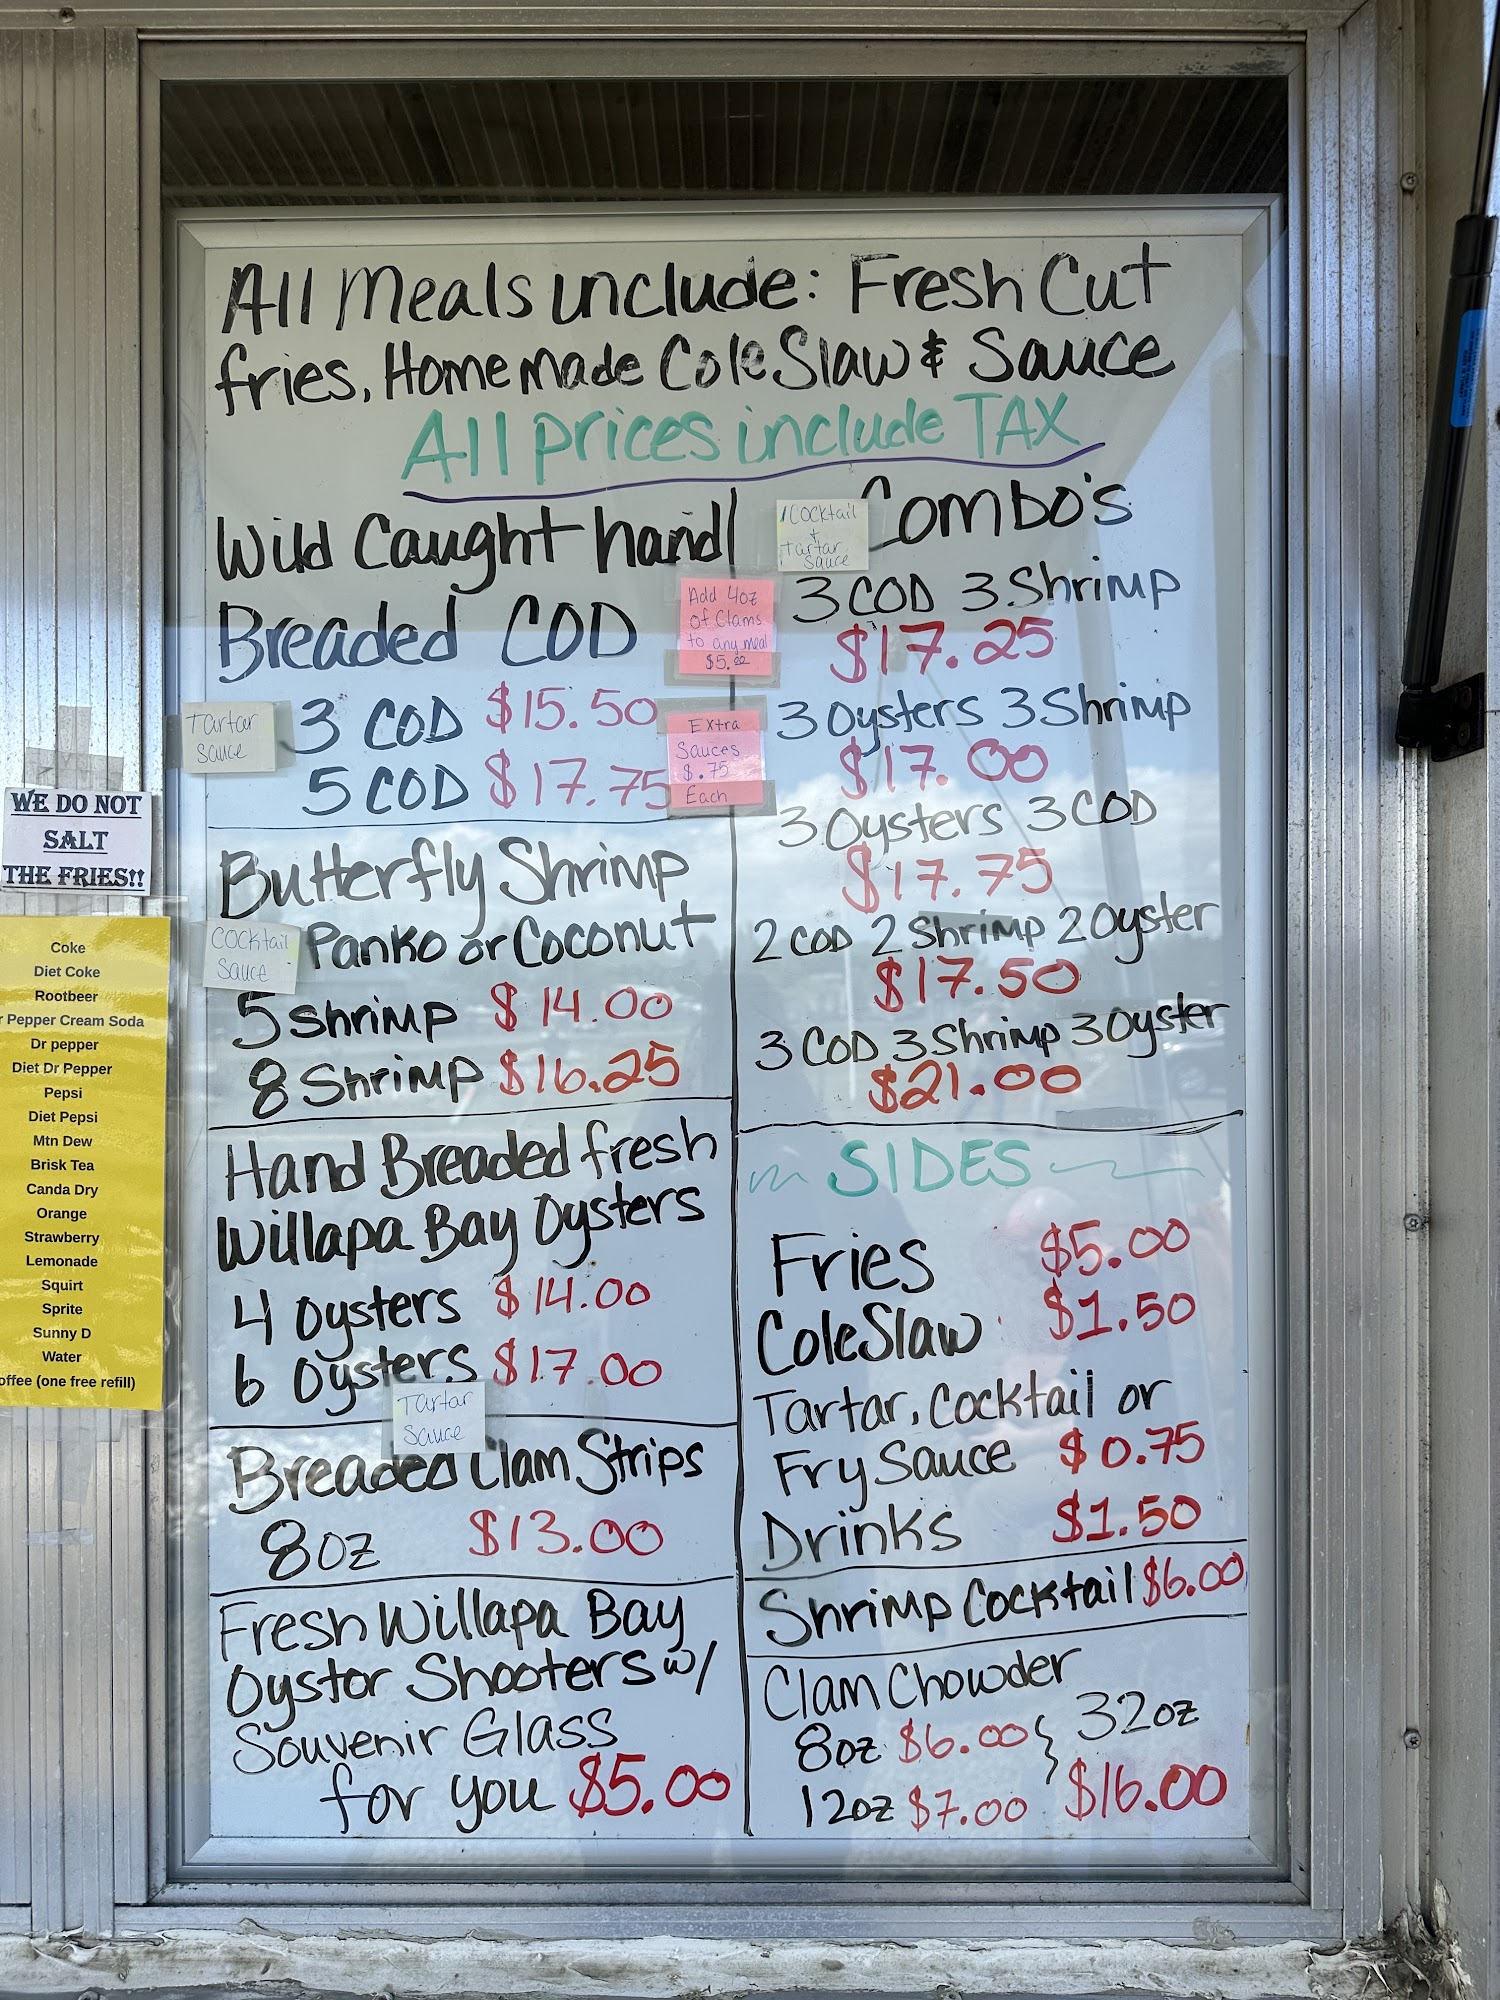 All Meals include: Fresh Cut
fries, Homemade Cole Slaw & Sauce
All prices include TAX
Wild Caught hand
Breaded COD
Tartar
Sauce
3 COD $15.50
5 COD $17.75
Add 4oz
of Clams
to any meal
$5.00
Extra
Sauces
$.75
Each
Butterfly Shrimp
Panko or Coconut
Cocktail
Sauce
5 Shrimp $14.00
8 Shrimp $16.25
Hand Breaded fresh
Willapa Bay Oysters
4 Oysters $14.00
6 Oysters $17.00
Tartar
Sauce
Breaded Clam Strips
8oz $13.00
Fresh Willapa Bay
Oystor Shooters w/
Souvenir Glass
for you $5.00
1 Cocktail
+
Tartar
Sauce
Combo's
3 COD 3 Shrimp
$17.25
3 Oysters 3 Shrimp
$17.00
3 Oysters 3 COD
$17.75
2 COD 2 Shrimp 2 Oyster
$17.50
3 COD 3 Shrimp 3 Oyster
$21.00
SIDES
Fries $5.00
Cole Slaw $1.50
Tartar, Cocktail or
Fry Sauce $0.75
Drinks $1.50
Shrimp Cocktail $6.00
Clam Chowder
8oz $6.00 } 32oz
12oz $7.00 $16.00
WE DO NOT
SALT
THE FRIES!!
Coke
Diet Coke
Rootbeer
r Pepper Cream Soda
Dr pepper
Diet Dr Pepper
Pepsi
Diet Pepsi
Mtn Dew
Brisk Tea
Canda Dry
Orange
Strawberry
Lemonade
Squirt
Sprite
Sunny D
Water
offee (one free refill)